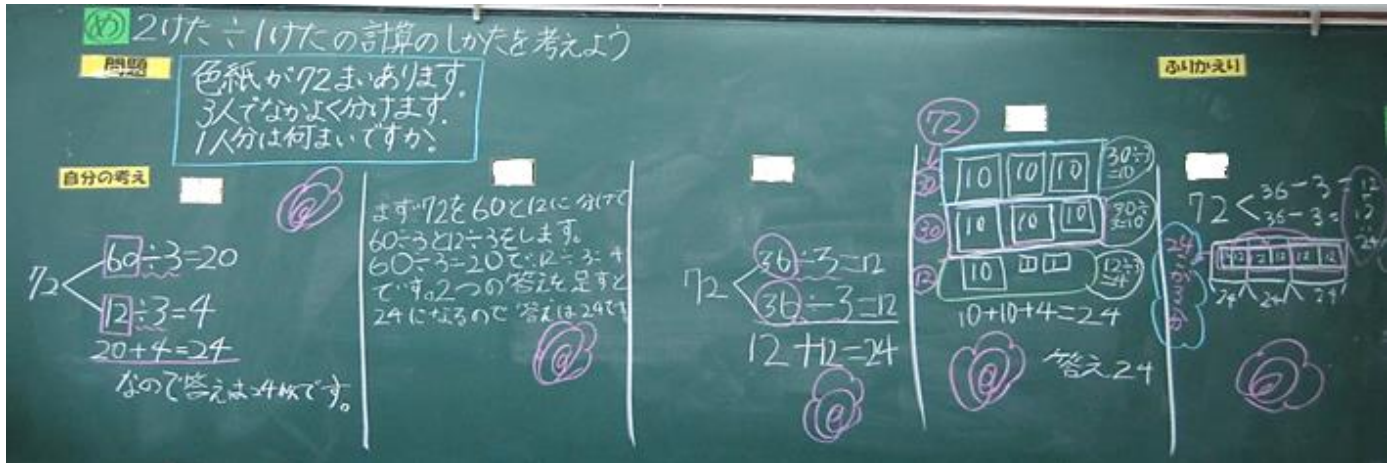 め 2けた÷1けたの計算のしかたを考えよう
問題
色紙が72まいあります。
3人でなかよく分けます。
1人分は何まいですか。
自分の考え
72
60÷3=20
12÷3=4
20+4=24
なので答えは24枚です。
まず72を60と12に分けて
60÷3と12÷3をします。
60÷3=20で12÷3=4
です。2つの答えを足すと
24になるので答えは24です
72
36÷3=12
36÷3=12
12+12=24
72
30
10 10 10
30÷3
=10
30
10 10 10
30÷
3=10
12
10 1 1
12÷3
=4
10+10+4=24
答え24
ふりかえり
24
72
36-3=12
36-3=12
24
24 24 24